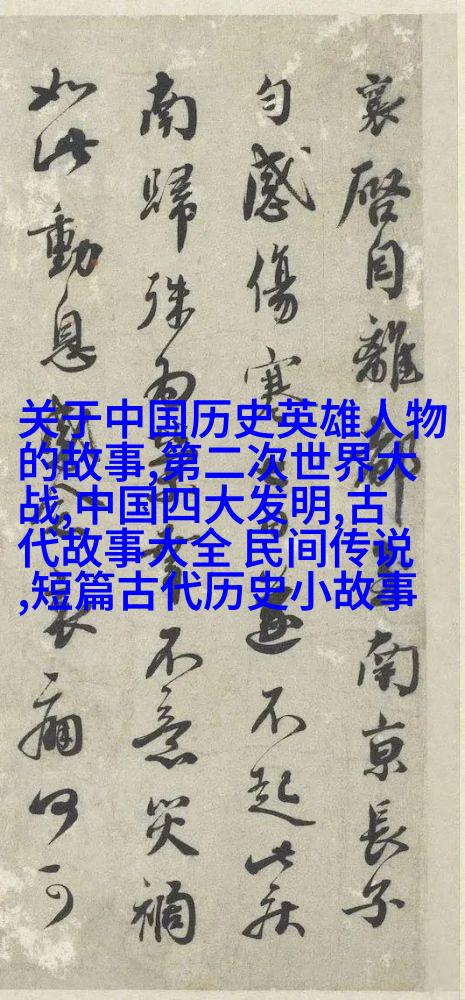 襄啓自離都南京長子
勻感傷寒不起此疾
南歸殊為不意災禍
如此動息哀痛何可
关于中国历史英雄人物
的故事,第二次世界大
战,中国四大发明,古
代故事大全 民间传说
,短篇古代历史小故事